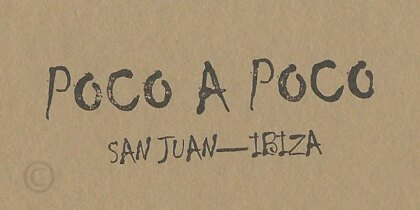 POCO A POCO
SAN JUAN—IBIZA
©